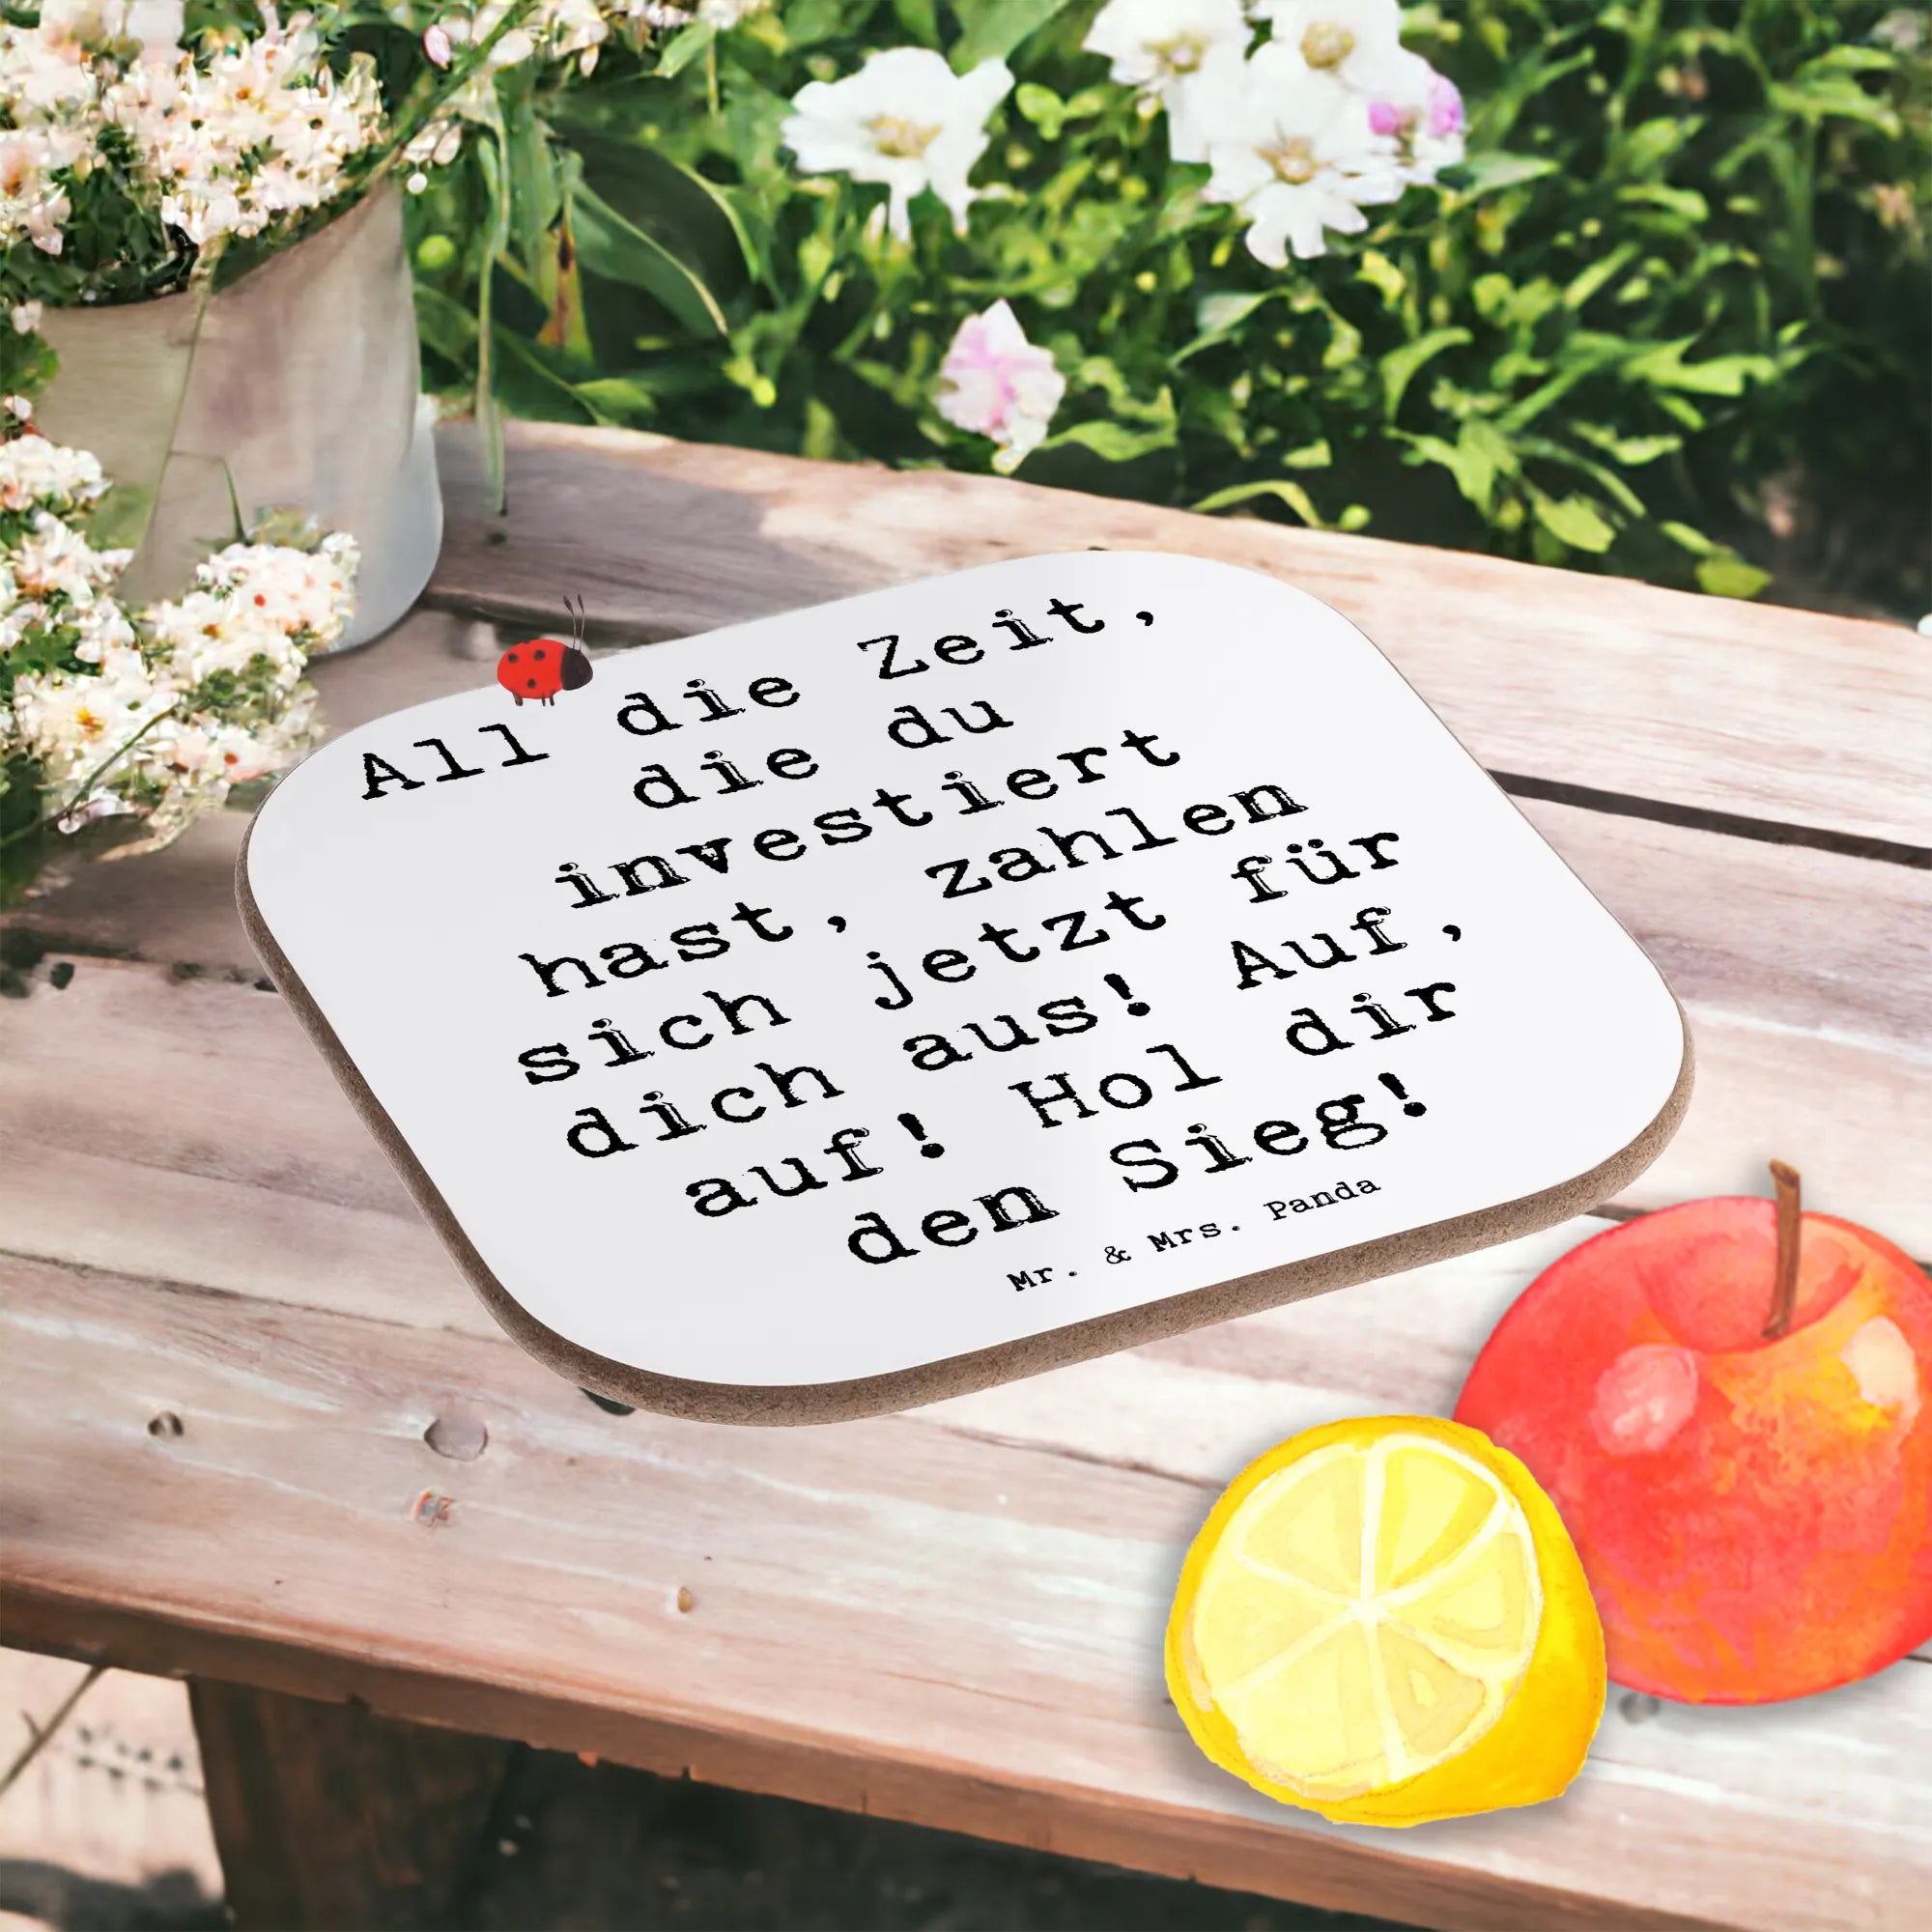 All die Zeit,
die du
investiert
hast, zahlen
sich jetzt für
dich aus! Auf,
auf! Hol dir
den Sieg!
Mr. & Mrs. Panda